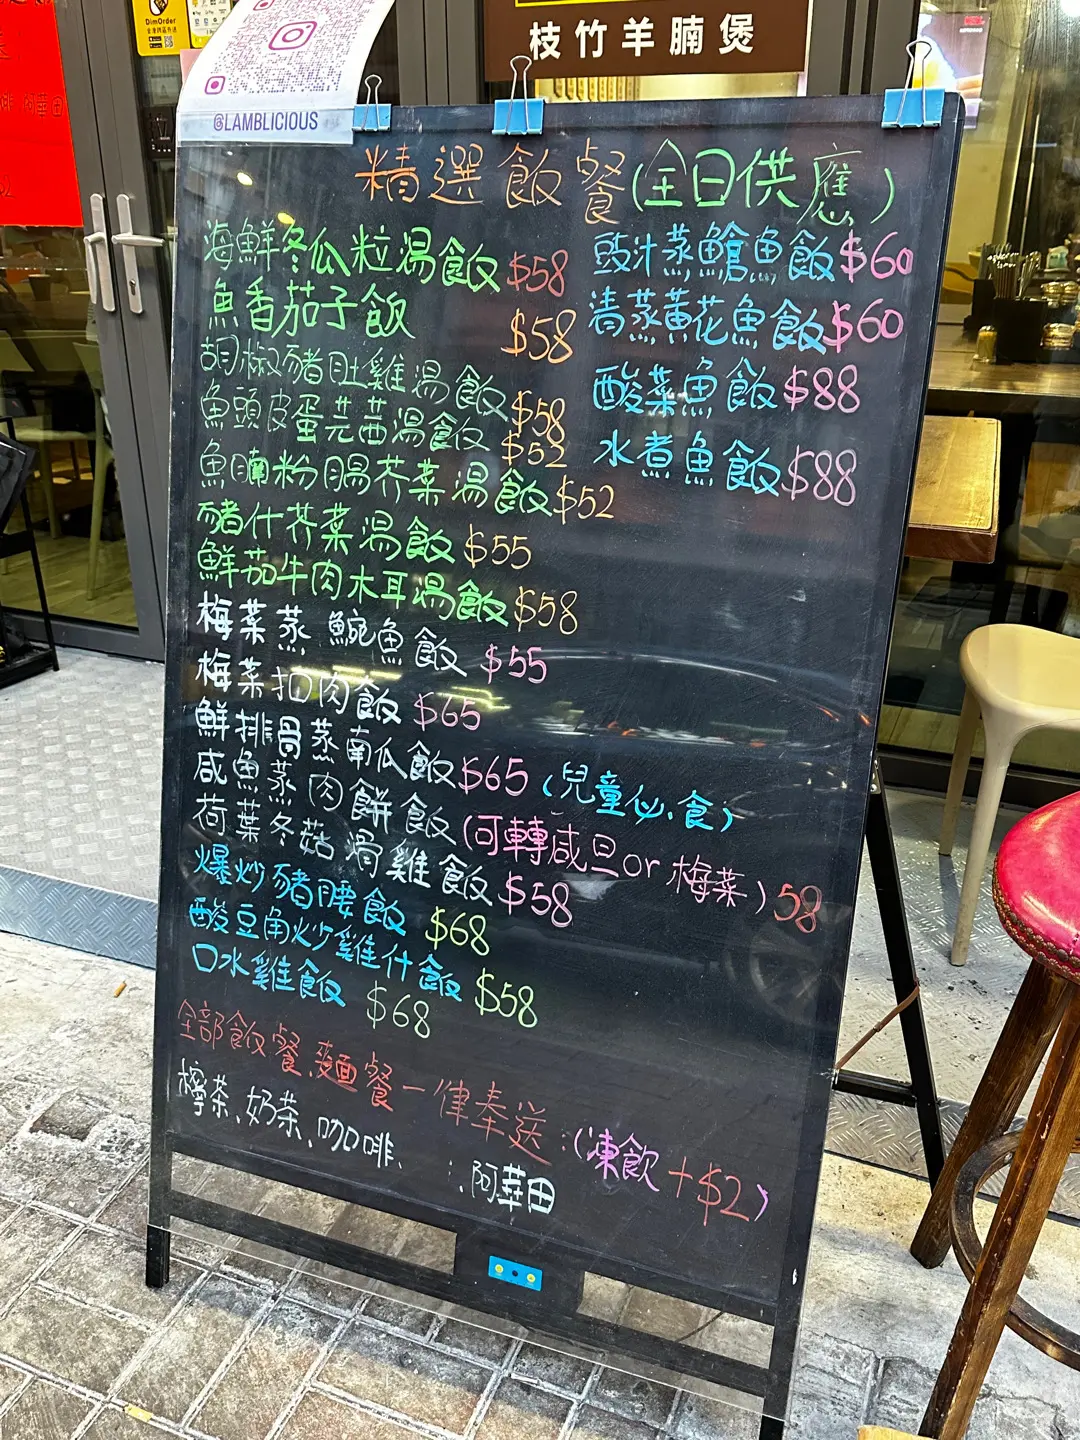 DimOrder
枝竹羊腩煲
@LAMBLICIOUS
精選飯餐(全日供應)
海鮮冬瓜粒湯飯 $58
魚香茄子飯 $58
胡椒豬肚雞湯飯 $58
魚頭皮蛋芫茜湯飯 $52
魚腩粉腸芥菜湯飯 $52
豬什芥菜湯飯 $55
鮮茄牛肉木耳湯飯 $58
梅菜蒸鯇魚飯 $55
梅菜扣肉飯 $65
鮮排骨蒸南瓜飯 $65 (兒童必食)
咸魚蒸肉餅飯(可轉咸旦or梅菜) 58
荷葉冬菇滑雞飯 $58
爆炒豬腰飯 $68
酸豆角炒雞什飯 $58
口水雞飯 $68
豉汁蒸鯧魚飯 $60
清蒸黃花魚飯 $60
酸菜魚飯 $88
水煮魚飯 $88
全部飯餐、麵餐一律奉送:(凍飲+$2)
檸茶、奶茶、咖啡、阿華田